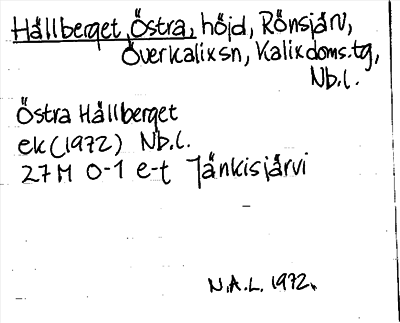 Hällberget, Östra, höjd, Rönsjärv,
Överkalix sn, Kalix doms. tg,
Nb. l.
Östra Hällberget
ek (1972) Nb. l.
27 M 0-1 e-t Jänkisjärvi
N.A.L. 1972.